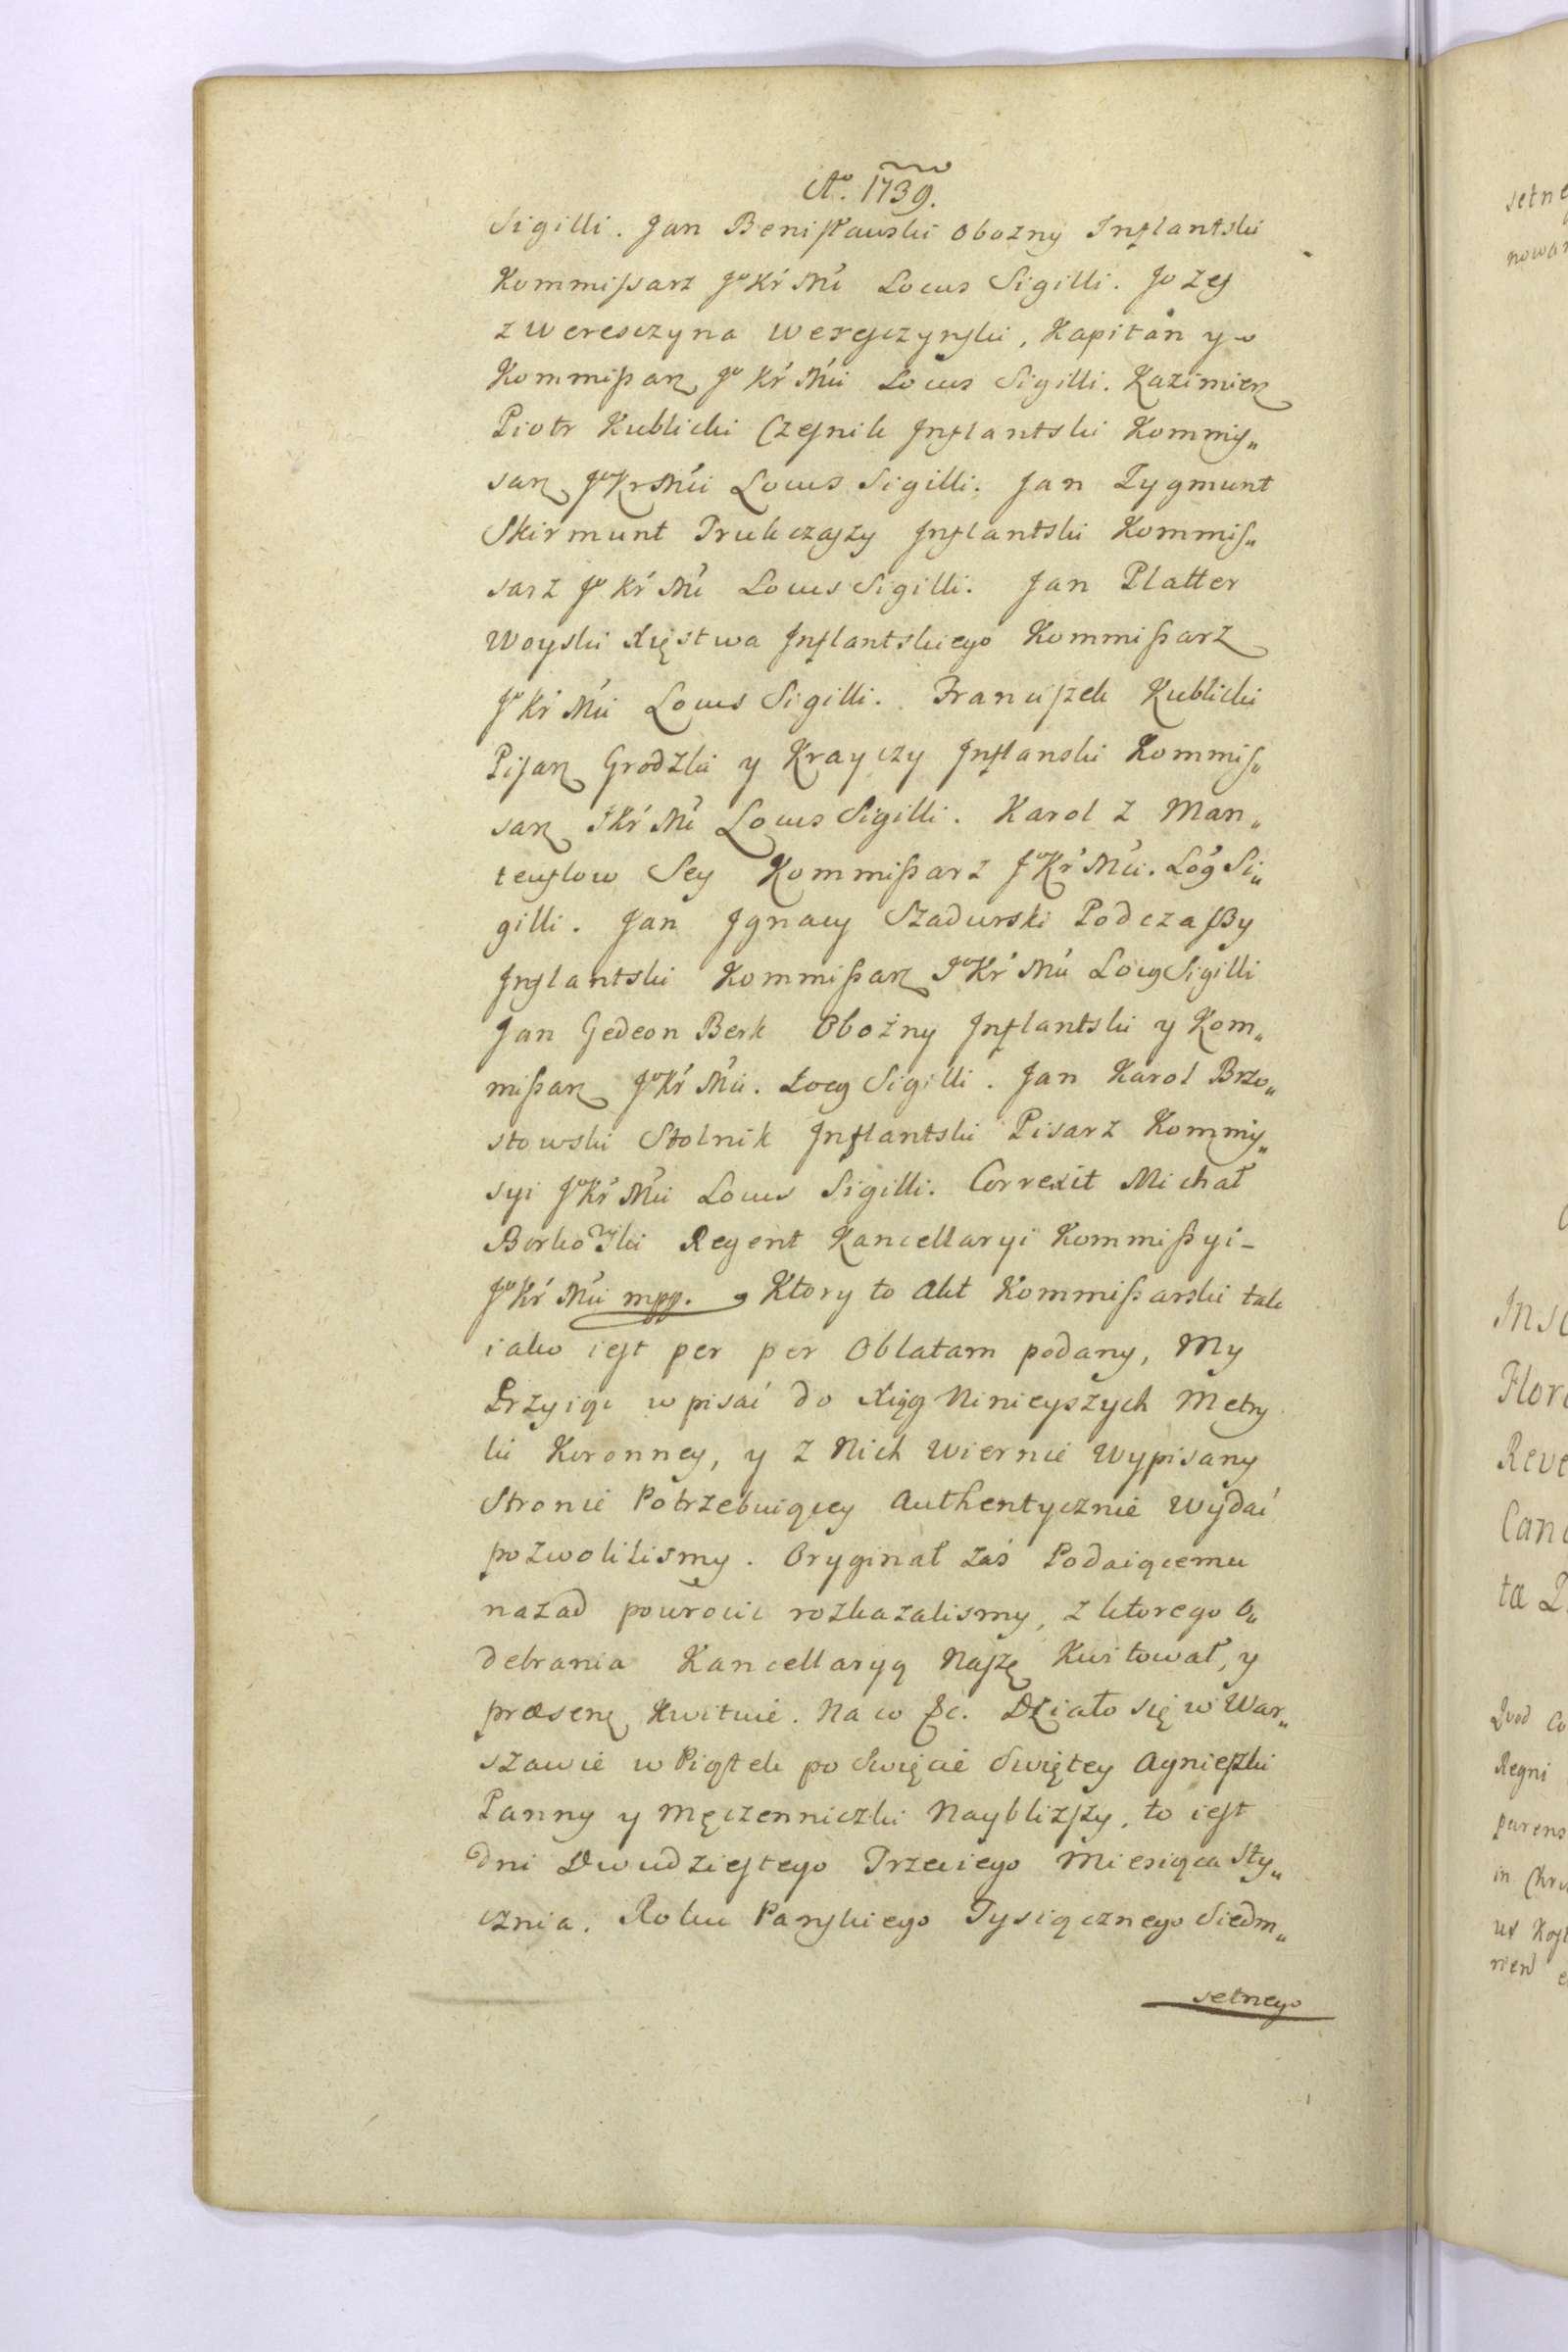 Ao. 1739.
Sigilli. Jan Benisławski Obozny Inflantski
Kommissarz Jo Kr Mci Locus Sigilli. Jozef
z Weresczyna Weresczynski, Kapitan y
Kommissarz Jo Kr Mci Locus Sigilli. Kazimierz
Piotr Kublicki Czesnik Inflantski Kommis„
sarz Jo Kr Mci Locus Sigilli. Jan Zygmunt
Skirmunt Trukczaszy Inflantski Kommis„
sarz Jo Kr Mci Locus Sigilli. Jan Platter
Woyski Xięstwa Inflantskiego Kommissarz
Jo Kr Mci Locus Sigilli. Franciszek Kublicki
Pisarz Grodzki y Krayczy Inflanski Kommis„
sarz J Kr Mci Locus Sigilli. Karol z Man„
teuflow Sey Kommissarz Jo Kr Mci. Locg Si„
gilli. Jan Ignacy Szadurski Podczaszy
Inflantski Kommissarz Jo Kr Mci Locg Sigilli
Jan Gedeon Berk Obożny Inflantski y Kom„
missarz Jo Kr Mci. Locg Sigilli. Jan Karol Brzo„
stowski Stolnik Inflantski Pisarz Kommis„
syi Jo Kr Mci Locus Sigilli. Correxit Michał
Borkowski Regent Kancellaryi Kommissyi-
Jo Kr Mci mpp. Ktory to Akt Kommissarski tak
iako iest per per Oblatam podany, My
Przyiąc wpisać do Xiąg Ninieyszych Metry
ki Koronney, y z Nich Wiernie Wypisany
Stronie Potrzebuiącey Authentycznie Wydać
pozwolilismy. Oryginał zaś Podaiącemu
nazad powrocic rozkazalismy, z ktorego O„
debrania Kancellaryą Naszę Kwitował, y
præsenę Kwituie. Na co &c. Działo się w War„
szawie w Piątek po Swięcie Swiętey Agnieszki
Panny y Męczenniczki Naybliższy, to iest
dni Dwudziestego Trzeciego Miesiąca Sty„
cznia. Roku Panskiego Tysiącznego Siedm„
setnego
setne
nowan
Flor
Reve
Canc
ta
Quod Co
Regni
parens
in Chr